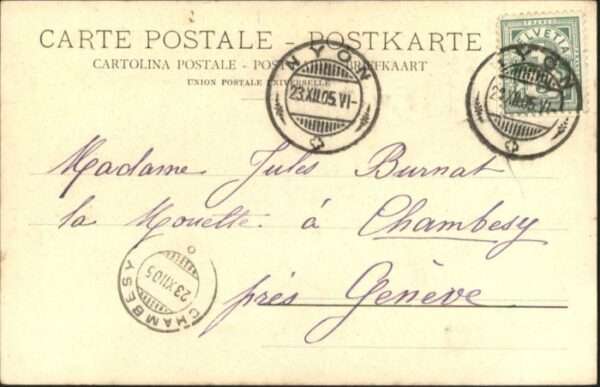 CARTE POSTALE - POSTKARTE
CARTOLINA POSTALE - POSTKAART BRIEFKAART
UNION POSTALE UNIVERSELLE
FRANCO
HELVETIA
NYON
23.XII.05.VI-
NYON
23.XII.05.VI-
Madame Jules Burnat
la Mouette à Chambesy
près Genève
CHAMBESY
23 XII 05